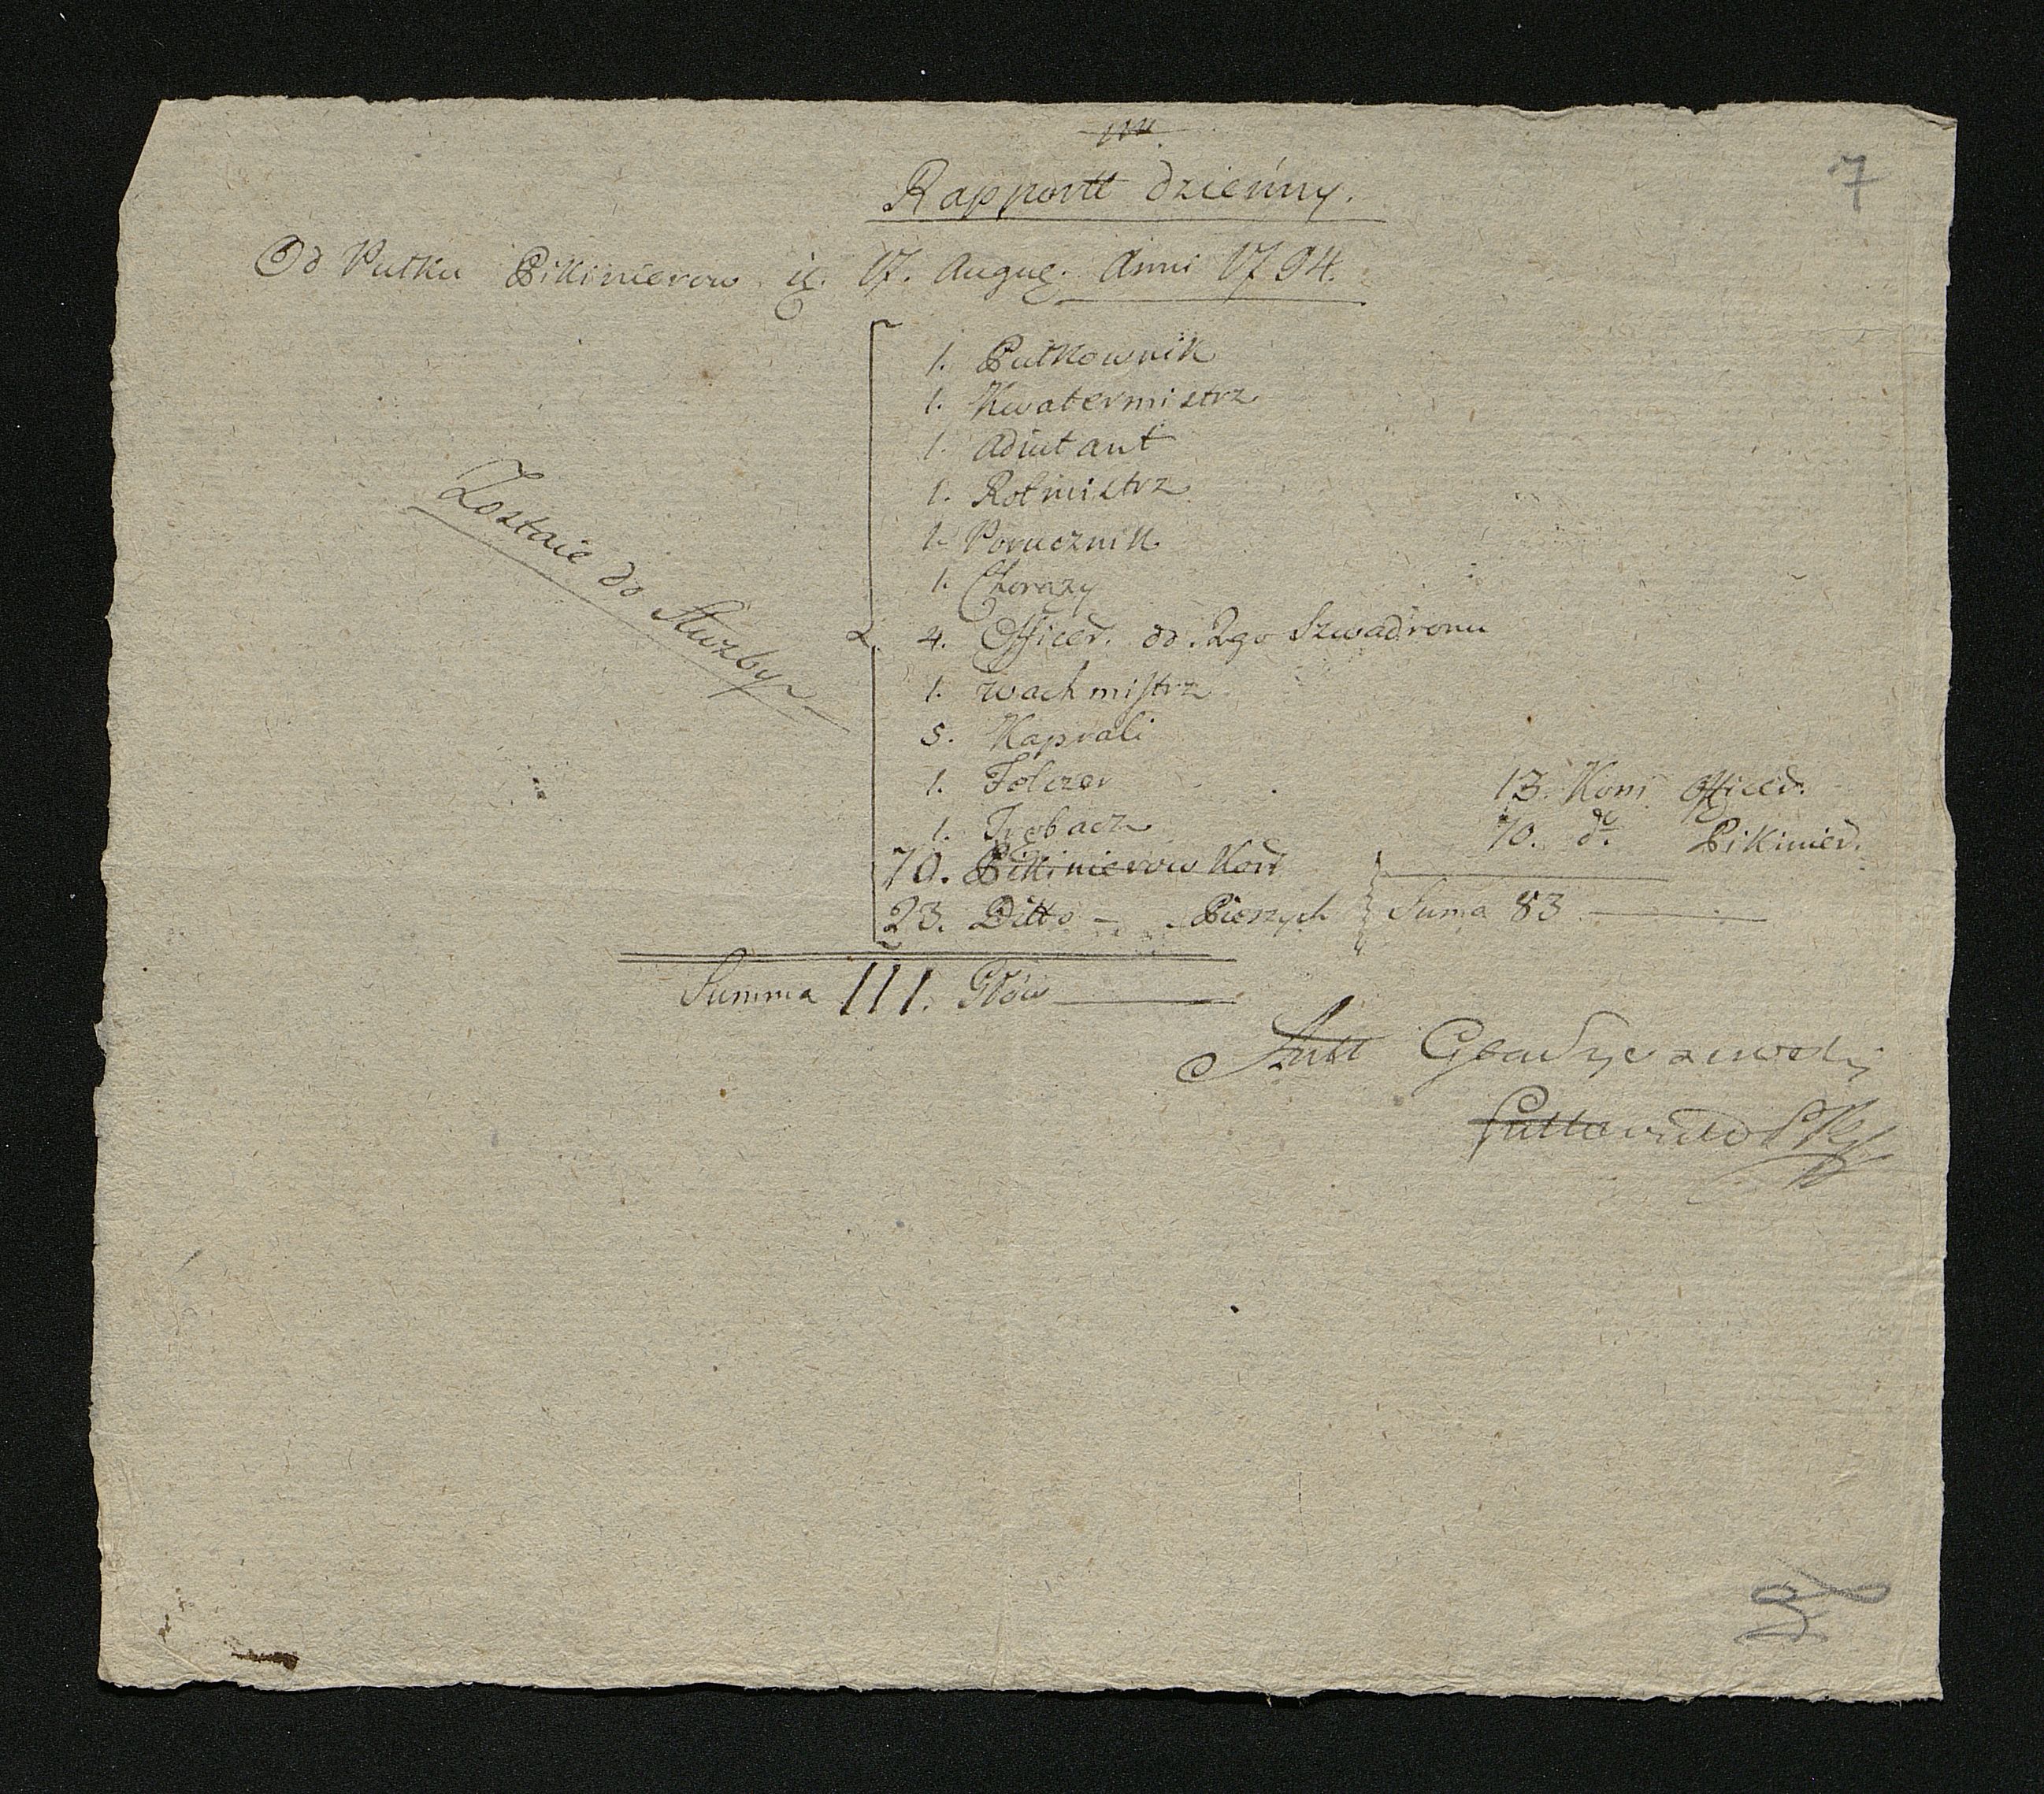 7
Rapportt dzieńny.
Od Pułku Pikinierow d. 17. Augus. Anni 1794.
1. Pułkownik
1. Kwatermistrz
1. Adiutant
1. Rotmistrz
1. Porucznik
1. Chorązy
Zostaie do Słuzby
4. Officer. od 2go Szwadronu
1. wachmistrz
5. Kaprali
1. Folczer
1. Trębacz
70. Pikinierow Kon
23. Ditto - Pieszych
13. Koni Officer.
70. do. Pikinier.
Suma 83
Summa 111. Głów